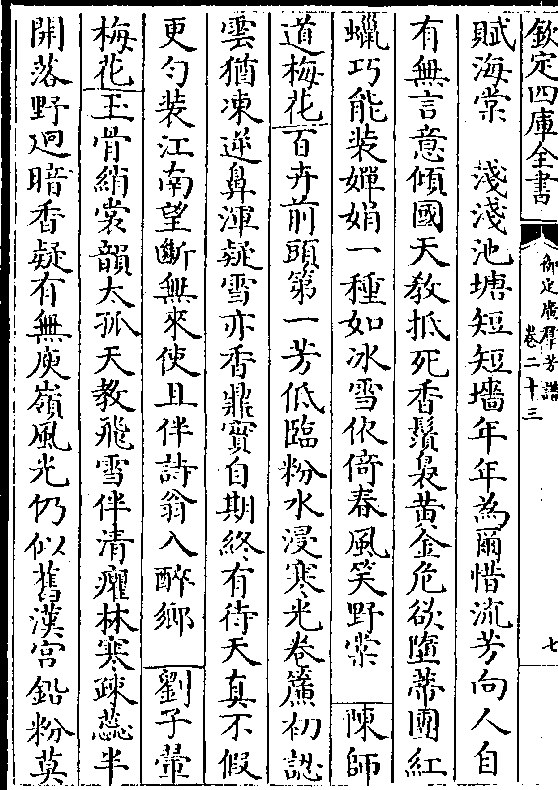 欽定四庫全書
御定廣群芳譜
卷二十三
七
賦海棠　淺淺池塘短短墻年年為爾惜流芳向人自
有無言意傾國天教抵死香鬚裊黃金危欲墮蒂團紅
蠟巧能装嬋娟一種如冰雪依倚春風笑野棠　陳師
道梅花百卉前頭第一芳低臨粉水浸寒光卷簾初認
雲猶凍逆鼻渾疑雪亦香鼎實自期終有待天真不假
更勻装江南望斷無來使且伴詩翁入醉鄉　劉子翬
梅花玉骨綃裳韻太孤天教飛雪伴清癯林寒疎蕊半
開落野迥暗香疑有無庾嶺風光仍似舊漢宮鉛粉莫